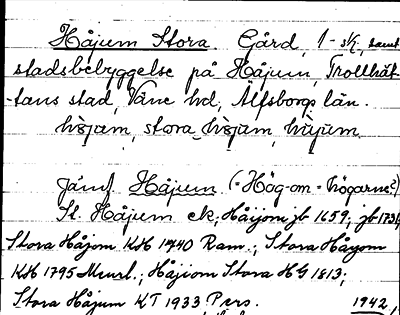 Håjum Stora. Gård, 1 sk, samt
stadsbebyggelse på Håjum, Trollhät-
tans stad, Väne hd, Älfsborgs län.
stora
Jämf Håjum (=Hög-om = högarne?)
St. Håjum ek; Håijom jb 1659; jb 1731,
Stora Håjom KH 1740 Ram.; Stora Håyom
KH 1795 Meurl.; Håjiom Stora HG 1813;
Stora Håjum KT 1933 Pers. 1942,